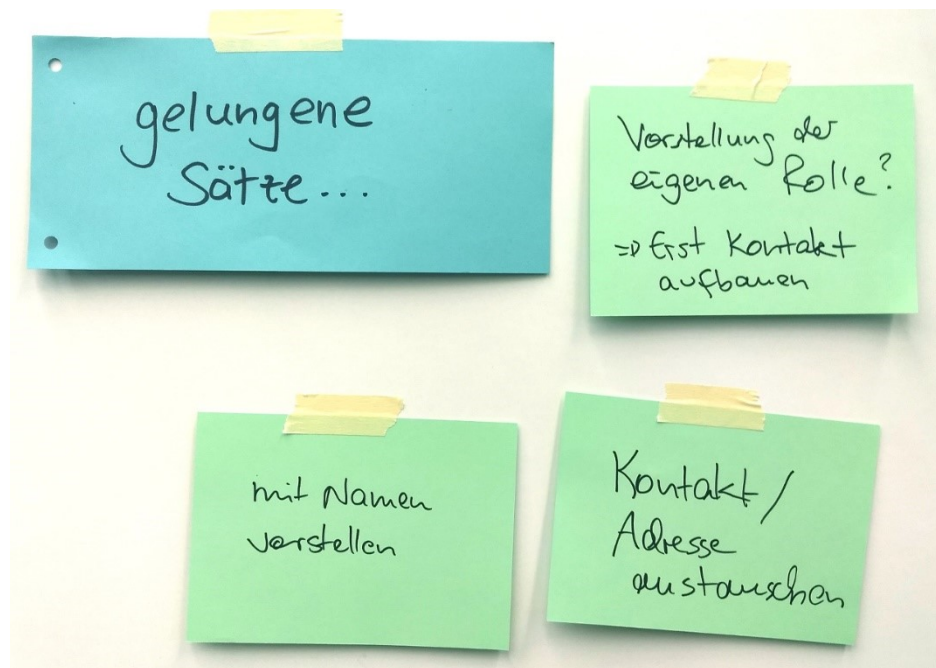 gelungene
Sätze...
Vorstellung der
eigenen Rolle?
=> Erst Kontakt
aufbauen
mit Namen
vorstellen
Kontakt /
Adresse
austauschen